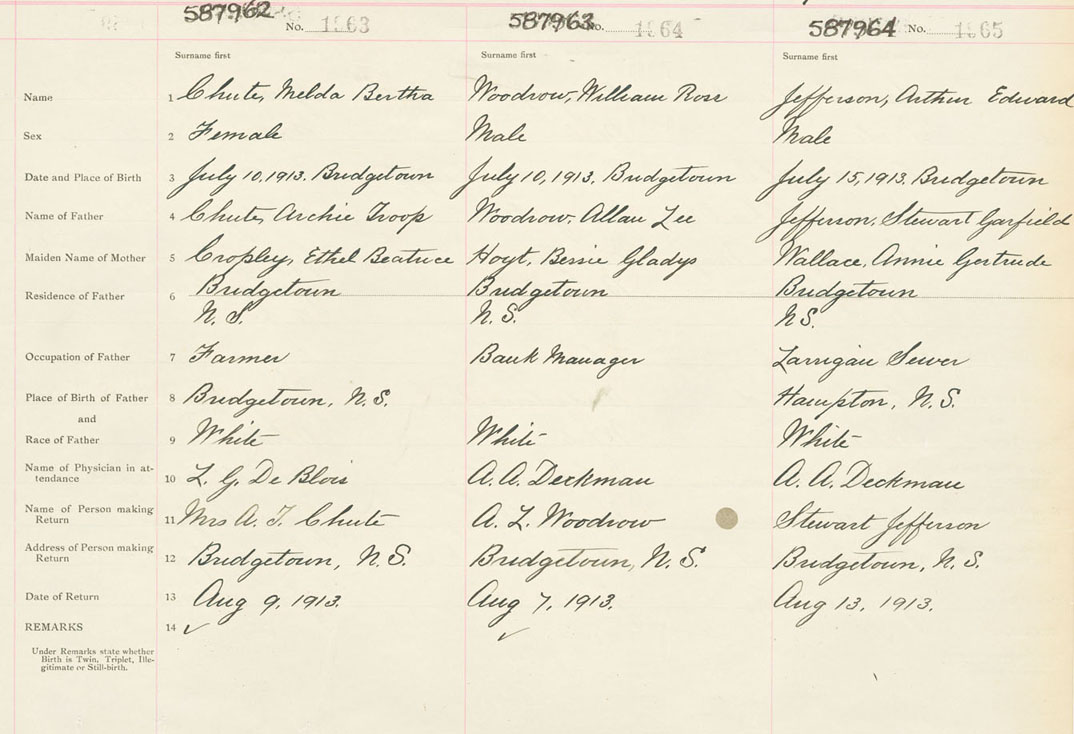 587962 No. 1863 587963 No. 1864 587964 No. 1865
Surname first Surname first Surname first
Name 1 Chute, Melda Bertha Woodrow, William Ross Jefferson, Arthur Edward
Sex 2 Female Male Male
Date and Place of Birth 3 July 10, 1913. Bridgetown July 10, 1913. Bridgetown July 15, 1913. Bridgetown
Name of Father 4 Chute, Archie Troop Woodrow, Allan Lee Jefferson, Stewart Garfield
Maiden Name of Mother 5 Cropley, Ethel Beatrice Hoyt, Bessie Gladys Wallace, Annie Gertrude
Residence of Father 6 Bridgetown Bridgetown Bridgetown
N. S. N. S. N S.
Occupation of Father 7 Farmer Bank Manager Larrigan Sewer
Place of Birth of Father 8 Bridgetown, N. S. Hampton, N. S.
and
Race of Father 9 White White White
Name of Physician in at-
tendance 10 L. G. De Blois A. A. Deckman A. A. Deckman
Name of Person making
Return 11 Mrs A. T. Chute A. L. Woodrow Stewart Jefferson
Address of Person making
Return 12 Bridgetown, N. S. Bridgetown, N. S. Bridgetown, N. S.
Date of Return 13 Aug 9, 1913. Aug 7, 1913. Aug 13, 1913.
REMARKS 14 ✓ ✓
Under Remarks state whether
Birth is Twin, Triplet, Ille-
gitimate or Still-birth.